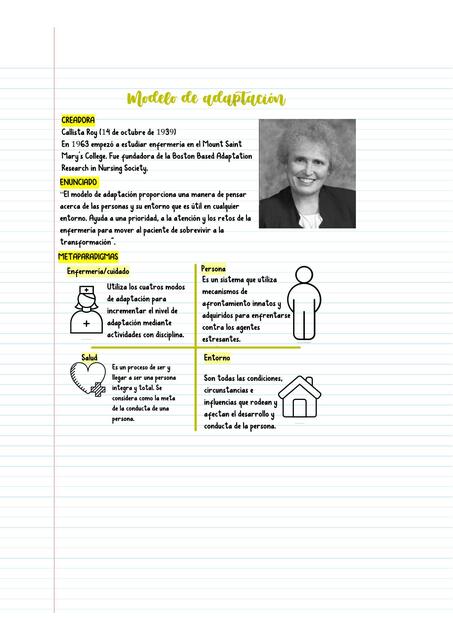 Modelo de adaptación
CREADORA
Callista Roy (14 de octubre de 1939)
En 1963 empezó a estudiar enfermería en el Mount Saint
Mary's College. Fue fundadora de la Boston Based Adaptation
Research in Nursing Society.
ENUNCIADO
"El modelo de adaptación proporciona una manera de pensar
acerca de las personas y su entorno que es útil en cualquier
entorno. Ayuda a una prioridad, a la atención y los retos de la
enfermería para mover al paciente de sobrevivir a la
transformación".
METAPARADIGMAS
Enfermería/cuidado
Utiliza los cuatros modos
de adaptación para
incrementar el nivel de
adaptación mediante
actividades con disciplina.
Persona
Es un sistema que utiliza
mecanismos de
afrontamiento innatos y
adquiridos para enfrentarse
contra los agentes
estresantes.
Salud
Es un proceso de ser y
llegar a ser una persona
integra y total. Se
considera como la meta
de la conducta de una
persona.
Entorno
Son todas las condiciones,
circunstancias e
influencias que rodean y
afectan el desarrollo y
conducta de la persona.